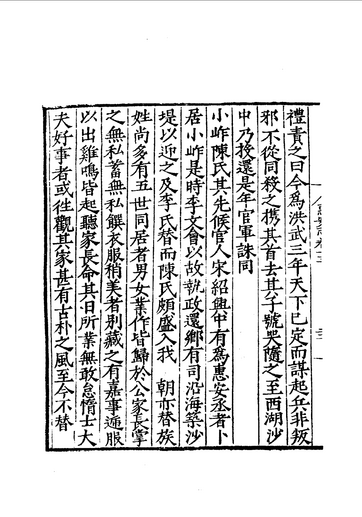 禮責之曰今為洪武三年天下已定而謀起兵非叛
邪不從同殺之携其首去其子號哭隨之至西湖沙
中乃投還是年官軍誅同
小岞陳氏其先候官人宋紹興中有為惠安丞者卜
居小岞是時李文會以故執政還鄉有司沿海築沙
堤以迎之及李氏替而陳氏頗盛入我　朝亦替族
姓尚多有五世同居者男女業作皆歸於公家長掌
之無私蓄無私饌衣服稍美者别藏之有嘉事遞服
以出雞鳴皆起聽家長命其日所業無敢怠惰士大
夫好事者或徃觀其家甚有古朴之風至今不替